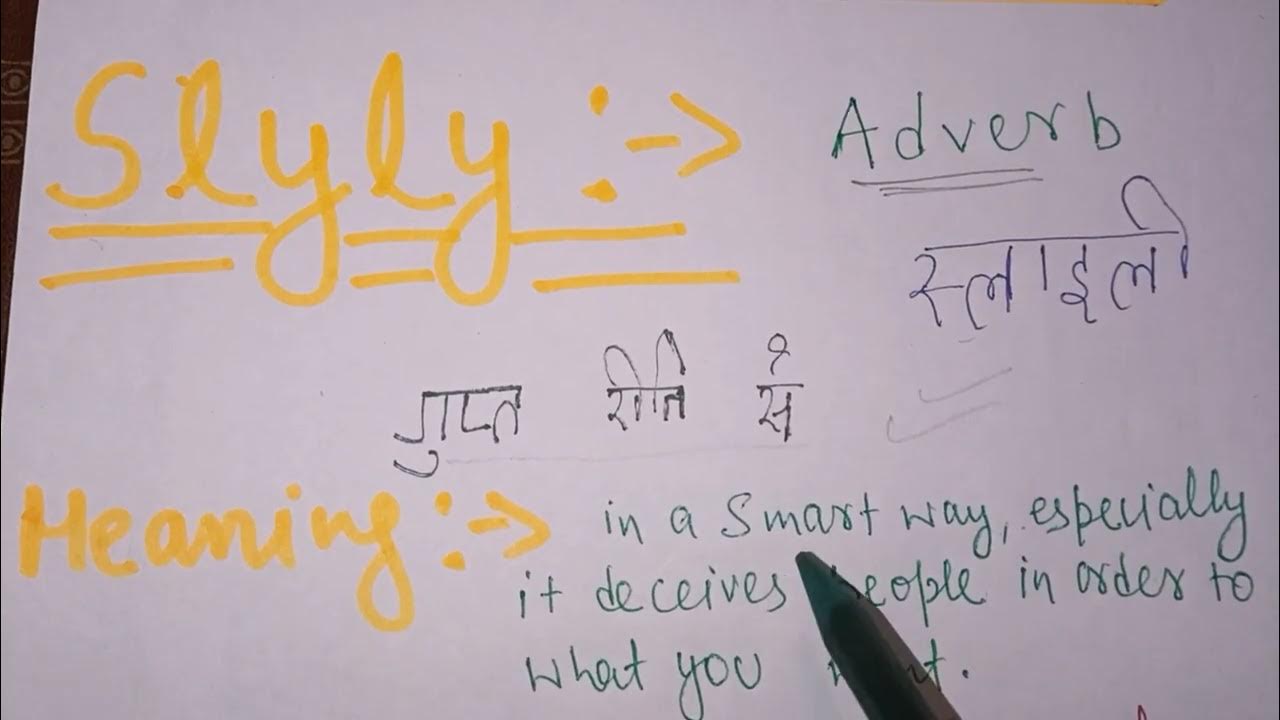 Slyly :-> Adverb
स्लाइली
गुप्त रीति से
Meaning :-> in a smart way, especially
it deceives people in order to
what you